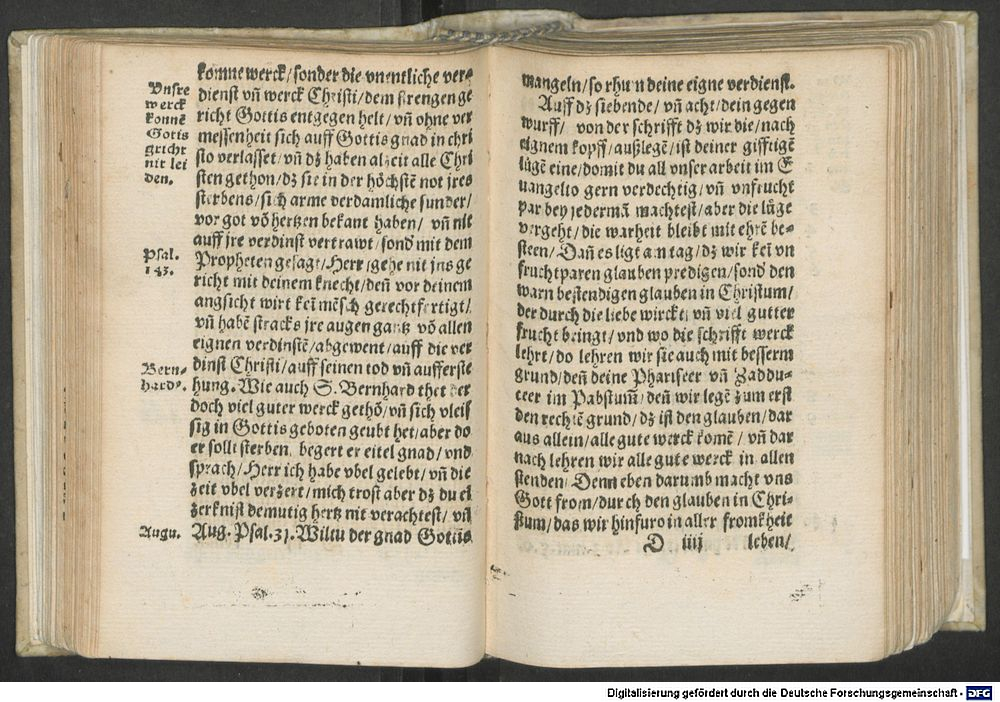 konne werck/ sonder die vnentliche ver⸗
dienst vñ werck Christi/ dem strengen ge
richt Gottis entgegen helt/ vñ ohne ver
messenheit sich auff Gottis gnad in chri
sto verlasset/ vñ dz haben alzeit alle Chri
sten gethon/ dz sie in der höchstẽ not jres
sterbens/ sich arme verdamliche sunder/
vor got võ hertzen bekant haben/ vñ nit
auff jre verdinst vertrawt/ sond' mit dem
Propheten gesagt/ Herr/ gehe nit jns ge
richt mit deinem knecht/ deñ vor deinem
angsicht wirt kei mẽsch gerechtfertigt/
vñ habẽ stracks jre augen gantz võ allen
eignen verdinstẽ/ abgewent/ auff die ver
dinst Christi/ auff seinen tod vñ aufferste
hung. Wie auch S. Bernhard thet der
doch viel guter werck gethõ/ vñ sich vleis
sig in Gottis geboten geubt het/ aber do
er sollt sterben, begert er eitel gnad/ vnd
sprach/ Herr ich habe vbel gelebt/ vñ die
zeit vbel verzert/ mich trost aber dz du ei
zerknist demutig hertz nit verachtest/ vñ
Aug. Psal. 31. Wiltu der gnad Gottis
Vnsre
werck
konnẽ
Gotis
gricht
nit lei
den.
Psal.
143.
Bern⸗
hard9.
Augu.
mangeln/ so rhum deine eigne verdienst.
Auff dz siebende/ vñ acht/ dein gegen
wurff/ von der schrifft dz wir die/ nach
eignem kopff/ außlegẽ/ ist deiner gifftigẽ
lügẽ eine/ domit du all vnser arbeit im E
uangelio gern verdechtig/ vñ vnfrucht
par bey jedermã machtest/ aber die lüge
vergeht/ die warheit bleibt mit ehrẽ be⸗
steen/ Dañ es ligt am tag/ dz wir kei vn
fruchtparen glauben predigen/ sond' den
warn bestendigen glauben in Christum/
der durch die liebe wirckt/ vñ viel gutter
frucht bringt/ vnd wo die schrifft werck
lehrt/ do lehren wir sie auch mit besserm
grund/ deñ deine Phariseer vñ Zaddu⸗
ceer im Pabstum̃/ deñ wir legẽ zum erst
den rechtẽ grund/ dz ist den glauben/ dar
aus allein/ alle gute werck komẽ/ vñ dar
nach lehren wir alle gute werck in allen
stenden/ Denn eben darumb macht vns
Gott from/ durch den glauben in Chri⸗
stum/ das wir hinfuro in aller fromkheit
D iiij leben/
Digitalisierung gefördert durch die Deutsche Forschungsgemeinschaft - DFG